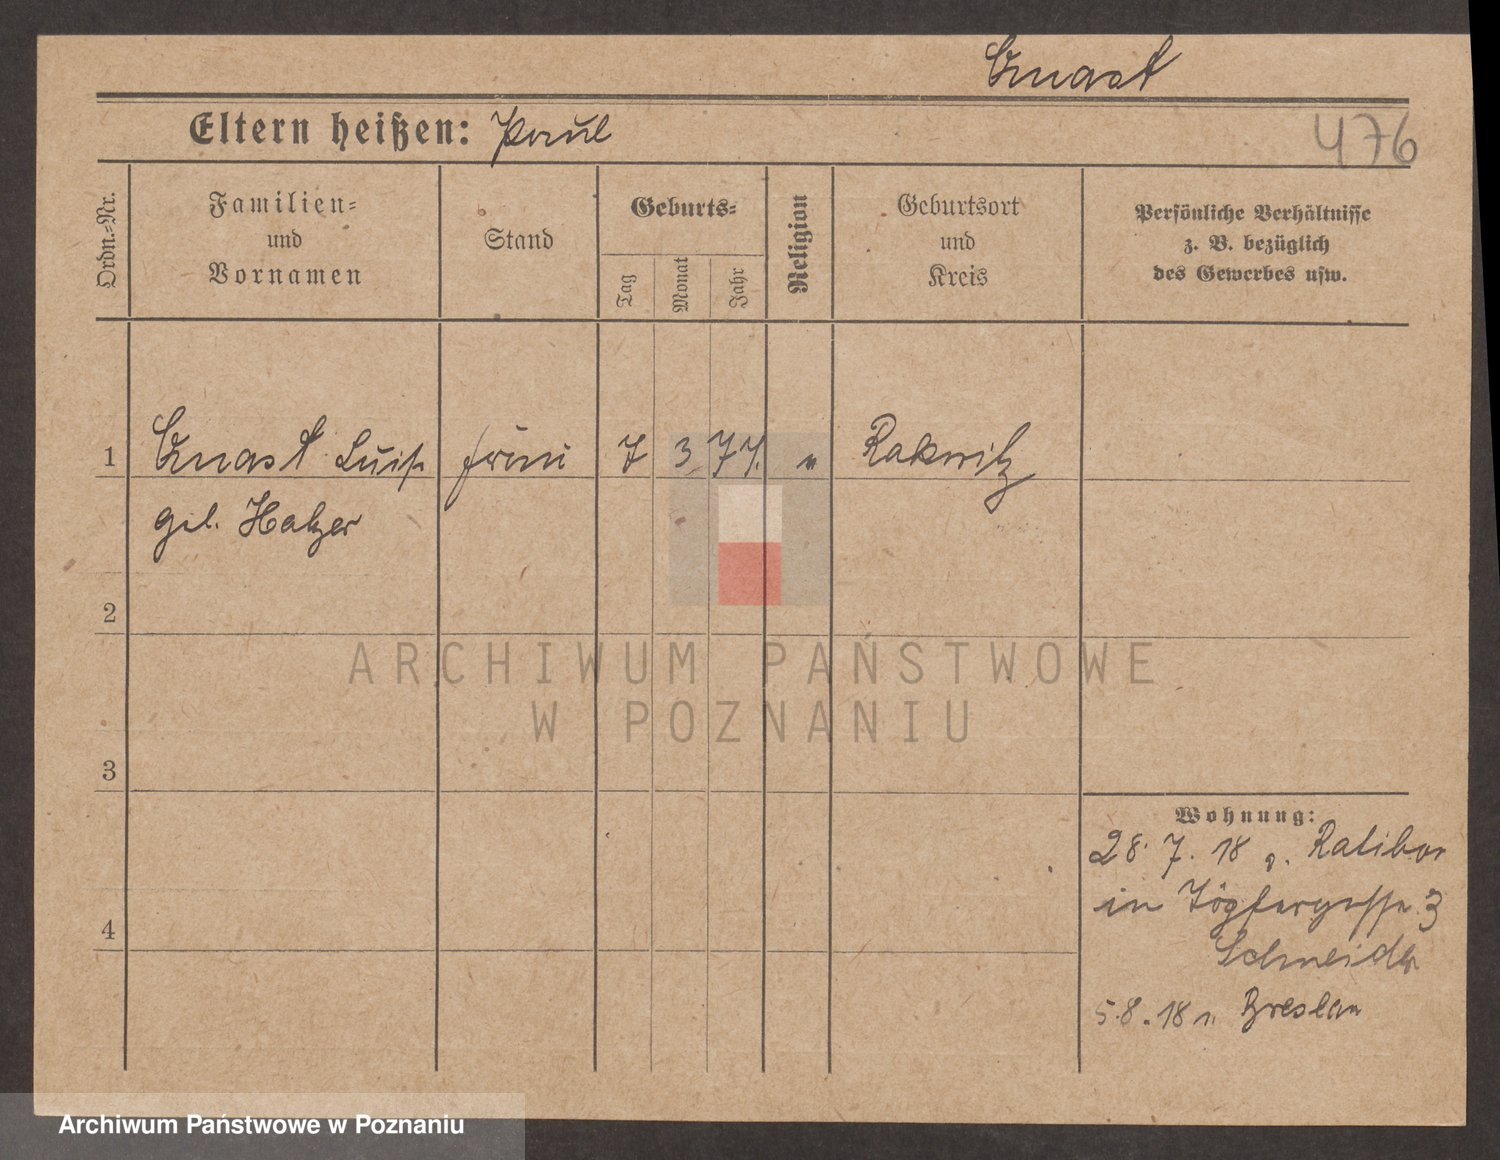 Gnast
Eltern heißen: Paul
476
Ordn.-Nr.
Familien-
und
Vornamen
Stand
Geburts-
Tag
Monat
Jahr
Religion
Geburtsort
und
Kreis
Persönliche Verhältnisse
z. B. bezüglich
des Gewerbes usw.
1 Gnast Luise 7 3 77. " Rakwitz
geb.
2
3
4
Wohnung:
28. 7. 18 v. Ratibor
in 3
Schneider
5. 8. 18 n. Breslau
ARCHIWUM PAŃSTWOWE
W POZNANIU
Archiwum Państwowe w Poznaniu